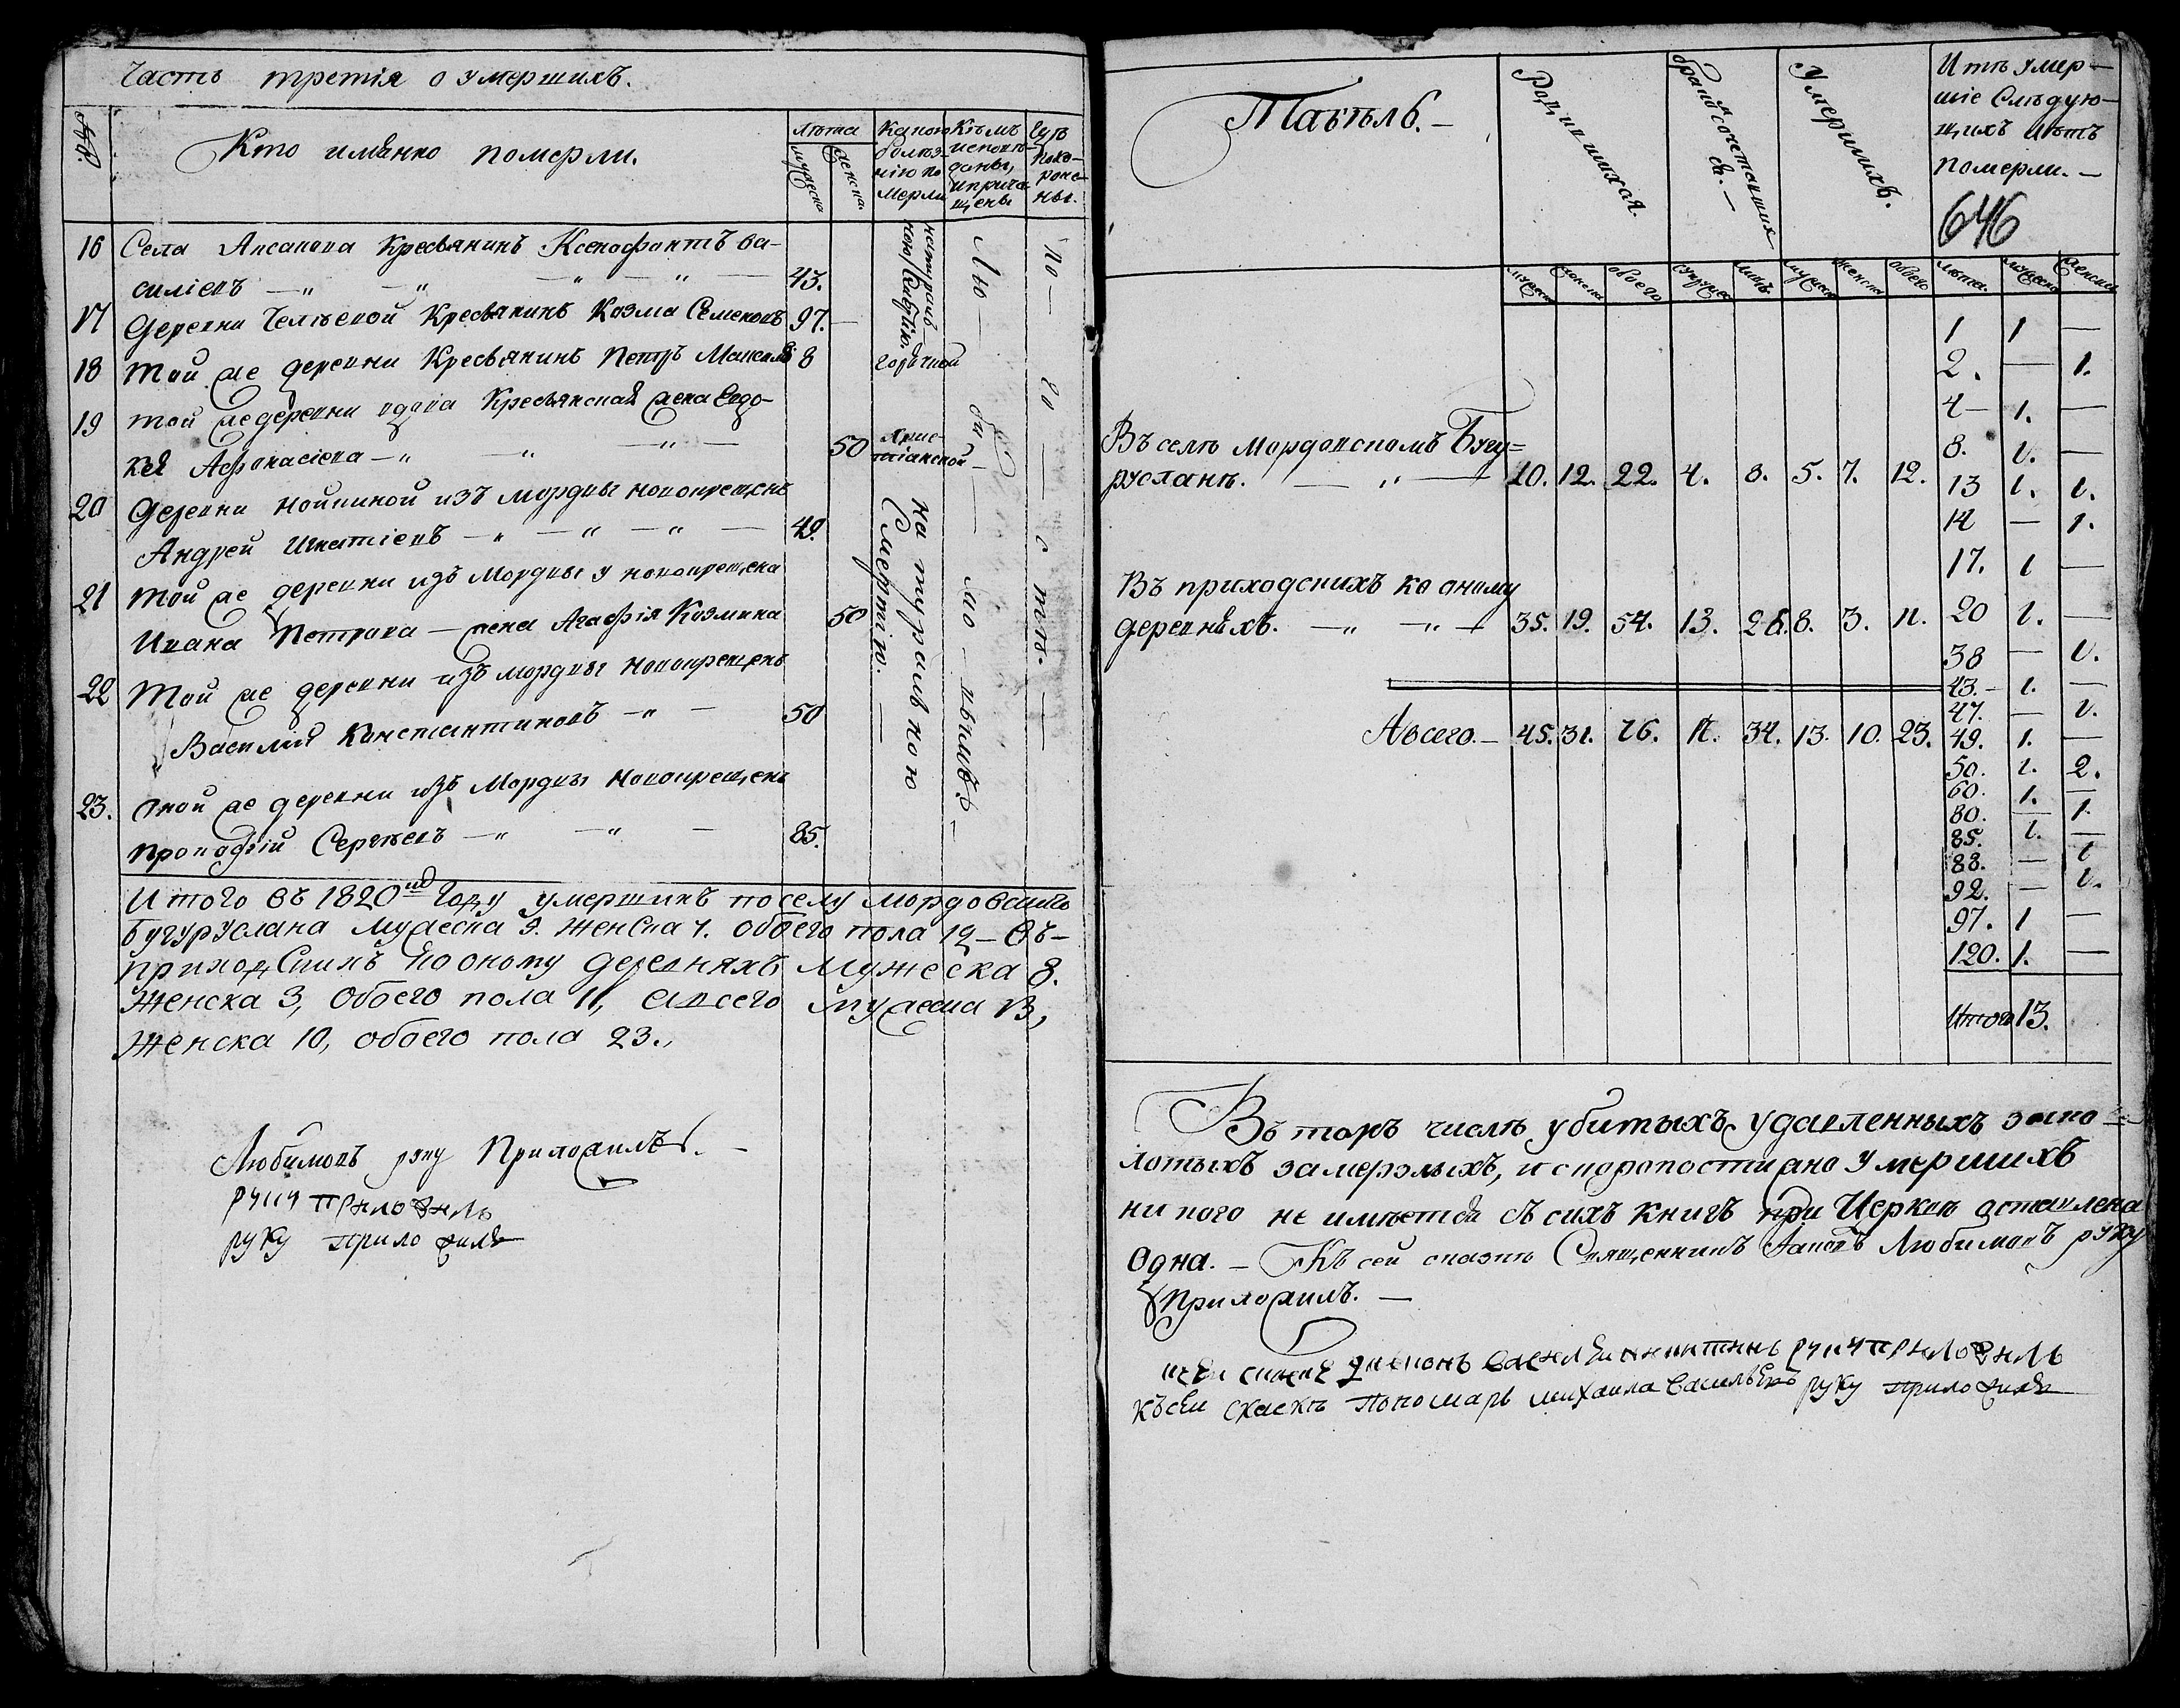 Часть третія о умершихъ.
Кто имѣнно померли.
Лѣта
мужеска
женска.
Какою болѣзнію померли
Кѣмъ исповѣданы, и причащены
Гдѣ похоронены.
16 Села Аксакова Крестьянинъ Ксенофонтъ Ва-
силіевъ — 43.
17 Деревни Челѣевой Крестьянинъ Козма Семеновъ 97. —
натуральною смертію.
18 той же деревни Крестьянинъ Петръ 8 горячкой
19 той же деревни вдова Крестьянская жена Евдо-
кея Афонасіева — 50
20 Деревни Нойкиной изъ мордвы новокрещенъ
Андрей Игнатіевъ — 49.
21 Той же деревни изъ Мордвы у новокрещена
Ивана Петрова — жена Агафія Козмина 50
22 Той же деревни изъ мордвы новокрещенъ
Василий Константиновъ — 50
23. той же деревни изъ Мордвы новокрещенъ
Сергѣевъ — 85.
на туральною
Смертію. —
Лю — би — мо — вымъ. —
По — го — с тѣ. —
Итого въ 1820 Году умершихъ по селу мордовскому
бугуруслана мужеска 5. женска 7. обоего пола 12 — въ —
приходскихъ по оному деревняхъ мужеска 8.
женска 3, обоего пола 11, а всего мужеска 13,
женска 10, обоего пола 23.
Любимовъ руку Приложилъ. —
руку приложилъ
руку приложилъ
Табѣль. —
Родившихся.
бракосочетавшихся. —
Умершихъ.
И тѣ умер-
шіе Слѣдую-
щихъ лѣтъ
померли. —
646
мужеска женска обоего лицъ мужеска женска обоего лѣта. мужеска женска
Въ селѣ Мордовскомъ Бугу=
русланѣ. — 10. 12. 22. 4. 8. 5. 7. 12.
Въ приходскихъ ко оному
деревнѣхъ. — 35. 19. 54. 13. 26. 8. 3. 11.
А всего. — 45. 31. 76. 17. 34. 13. 10. 23.
1 1 —
2. — 1.
4 — 1. —
8. 1. —
13 1. 1.
14 — 1.
17. 1 —
20 1. —
38 — 1.
43. — 1. —
47. — 1.
49. 1. —
50. 1. 2.
60. 1. —
80. — 1.
85. 1. —
88. — 1
92. — 1.
97. 1 —
120. 1. —
Итого 13.
Въ томъ числѣ убитыхъ удавленныхъ зако-
лотыхъ замерзлыхъ, и скоропостижно умершихъ
ни кого не имѣется съ сихъ книгъ при Церкви оставлена
Одна. — Къ сей сказкѣ Священникъ Іаковъ Любимовъ руку
приложилъ. —
къ сей сказке диаконъ василей никитинъ руку приложилъ
къ сей скаскѣ пономарь михаила васильевъ руку приложилъ